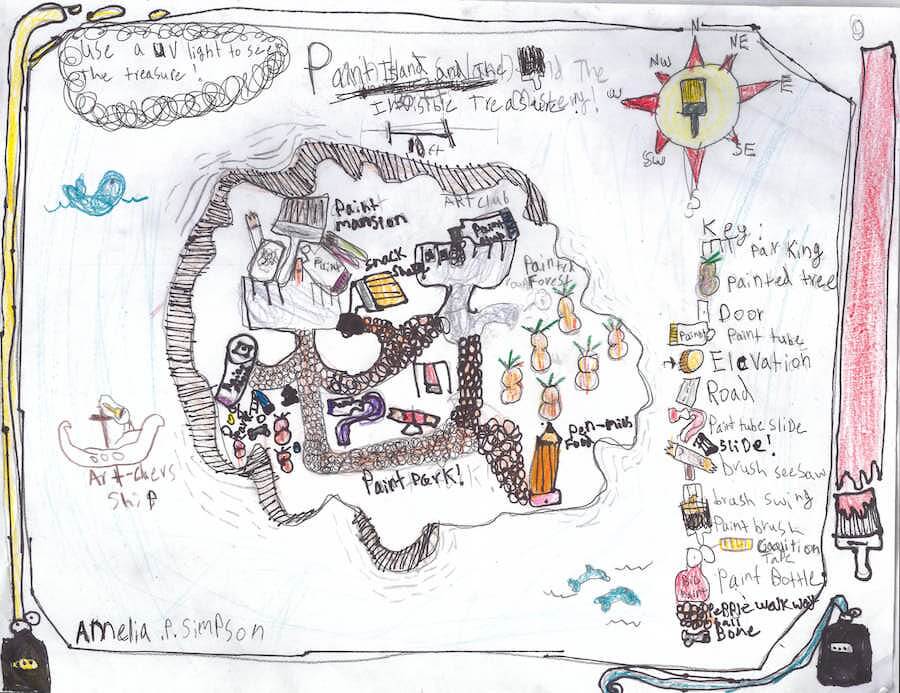 Use a UV light to see
the treasure!
Paint Island
and The
Invisible treasure
!
10 ft
N
NE
E
SE
S
SW
W
NW
Paint
mansion
ART club
snack
shop
Paint
Painted
Forest
Paint park!
Art-chers
Ship
Key:
Parking
painted tree
Door
Paint
Paint tube
Elavation
Road
Paint tube SliDe
SliDe!
brush seesaw
brush swing
Paint brush
Paint Bottle
Big
Paint
Pepple walkway
Ball
Bone
Amelia .P. Simpson